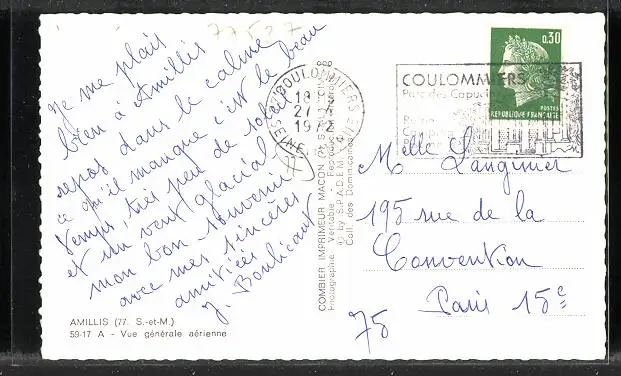 77527
Je me plais
bien à Amillis
repos dans le calme
ce qu'il manque c'est le beau
temps, très peu de soleil
et un vent glacial
mon bon souvenir
avec mes sincères
amitiés
AMILLIS (77. S.-et-M.)
59-17 A - Vue générale aérienne
COMBIER IMPRIMEUR MACON
Photographie Véritable - Reproduction
© by S.P.A.D.E.M.
Coll. des Dominicaines
COULOMMIERS
18H
27-4
1972
SEINE
0,30
POSTES
REPUBLIQUE FRANÇAISE
COULOMMIERS
Parc des Capucins
Melle Languier
195 rue de la
Convention
Paris 15e
75